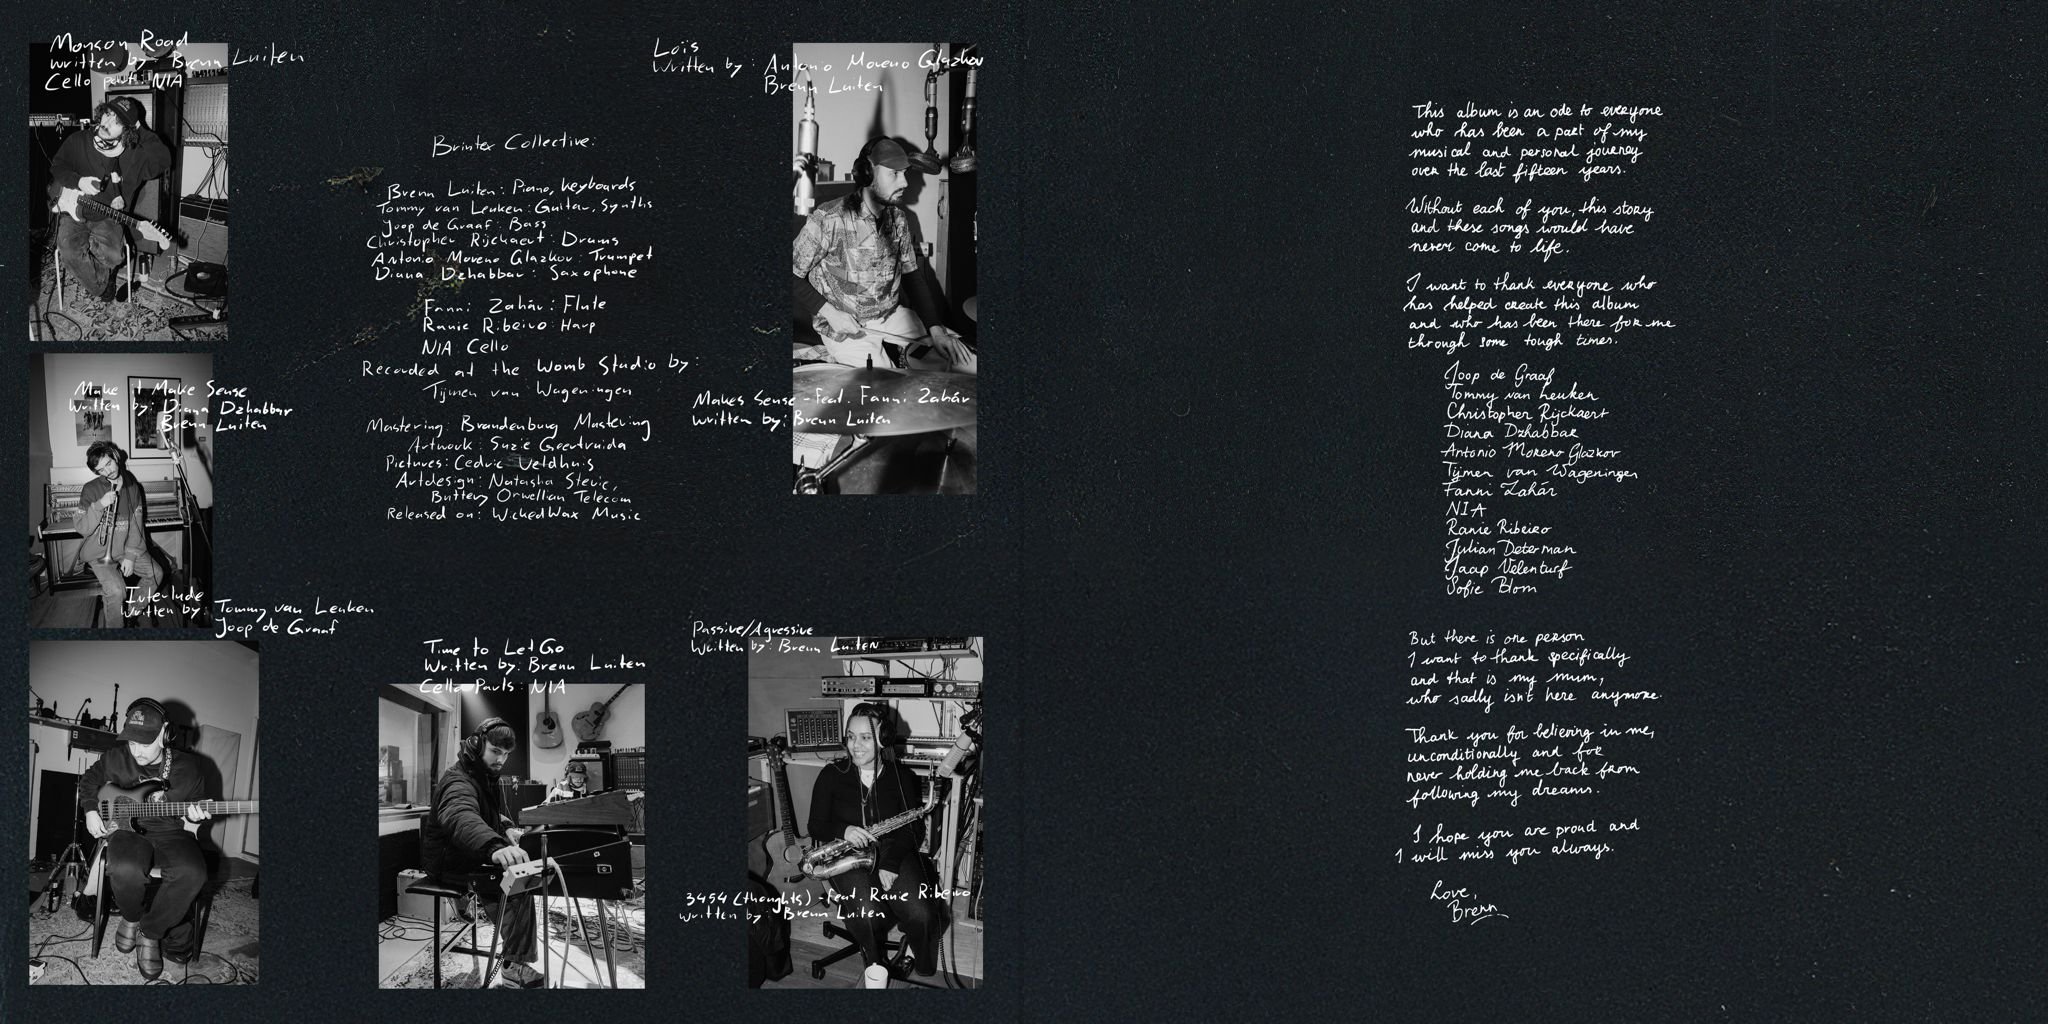 Monson Road
Written by: Brenn Luiten
Cello part: NIA
Loïs
Written by: Antonio Moreno Glazkov
Brenn Luiten
Brintex Collective:
Brenn Luiten: Piano, keyboards
Tommy van Leuken: Guitar, Synths
Joop de Graaf: Bass
Christopher Rijckaert: Drums
Antonio Moreno Glazkov: Trumpet
Diana Dzhabbar: Saxophone
Fanni Zahár: Flute
Ranie Ribeiro: Harp
NIA: Cello
Recorded at the Womb Studio by:
Tijmen van Wageningen
Mastering: Brandenburg Mastering
Artwork: Suzie Geertruida
Pictures: Cedric Veldhuis
Artdesign: Natasha Stevic,
Buttery Orwellian Telecom
Released on: WickedWax Music
Make it Make Sense
Written by: Diana Dzhabbar
Brenn Luiten
Makes Sense - feat. Fanni Zahár
Written by: Brenn Luiten
Interlude
Written by: Tommy van Leuken
Joop de Graaf
Time to Let Go
Written by: Brenn Luiten
Cello Parts: NIA
Passive/Agressive
Written by: Brenn Luiten
3454 (thoughts) - feat. Ranie Ribeiro
Written by: Brenn Luiten
This album is an ode to everyone
who has been a part of my
musical and personal journey
over the last fifteen years.
Without each of you, this story
and these songs would have
never come to life.
I want to thank everyone who
has helped create this album
and who has been there for me
through some tough times.
Joop de Graaf
Tommy van Leuken
Christopher Rijckaert
Diana Dzhabbar
Antonio Moreno Glazkov
Tijmen van Wageningen
Fanni Zahár
NIA
Ranie Ribeiro
Julian Determan
Jaap Velenturf
Sofie Blom
But there is one person
I want to thank specifically
and that is my mum,
who sadly isn't here anymore.
Thank you for believing in me,
unconditionally and for
never holding me back from
following my dreams.
I hope you are proud and
I will miss you always.
Love,
Brenn